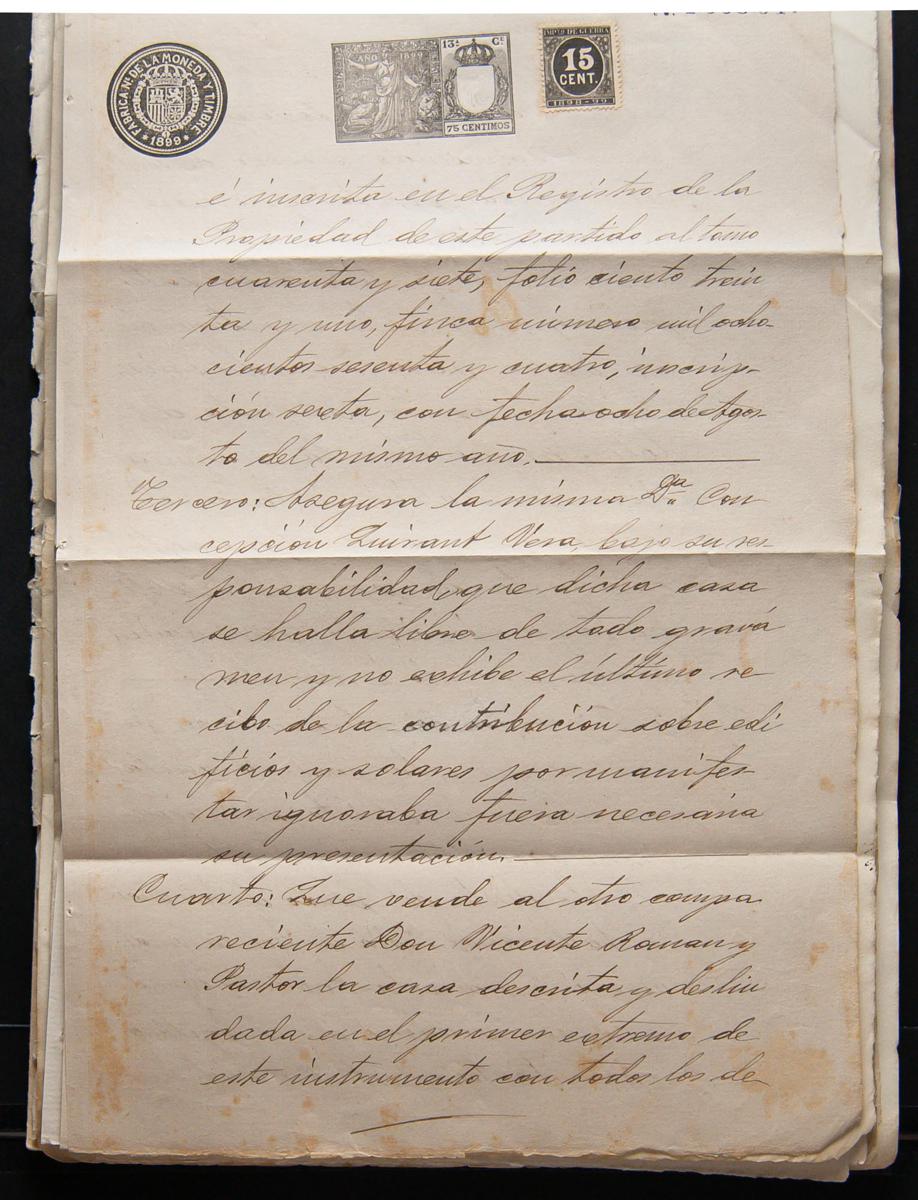 FABRICA Nᴸ DE LA MONEDA Y TIMBRE
* 1899 *
AÑO 1899
13ª Cᴱ
75 CENTIMOS
IMPTO DE GUERRA
15
CENT.
1898-99
é inscrita en el Registro de la
Propiedad de este partido al tomo
cuarenta y siete, folio ciento trein
ta y uno, finca número mil ocho-
cientos sesenta y cuatro, inscrip-
ción sexta, con fecha ocho de Agos-
to del mismo año.
Tercero: Asegura la misma Dª Con
cepción Quirant Vera, bajo su res-
ponsabilidad, que dicha casa
se halla libre de todo gravá
men y no exhibe el último re-
cibo de la contribución sobre edi
ficios y solares por manifes-
tar ignoraba fuera necesaria
su presentación.
Cuarto: Que vende al otro compa
reciente Don Vicente Roman y
Pastor la casa descrita y deslin
dada en el primer extremo de
este instrumento con todos los de-